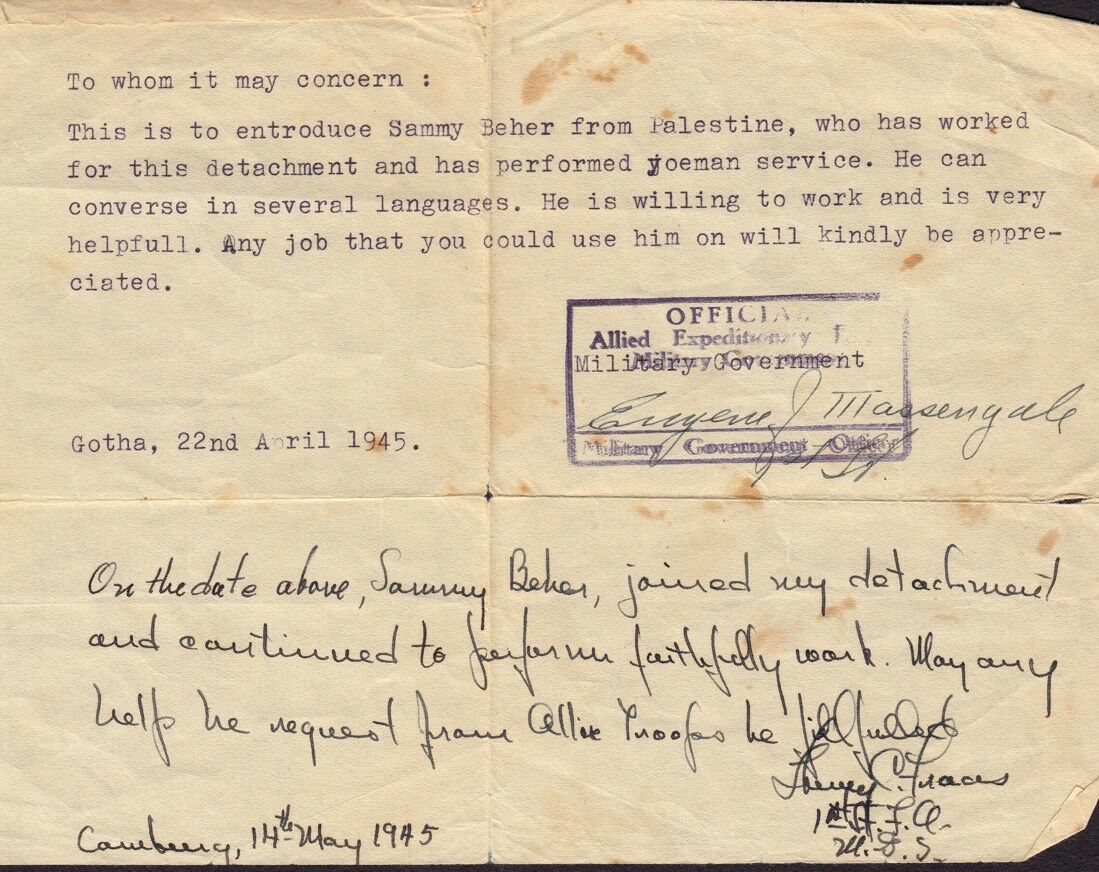 To whom it may concern :
This is to entroduce Sammy Beher from Palestine, who has worked
for this detachment and has performed yoeman service. He can
converse in several languages. He is willing to work and is very
helpfull. Any job that you could use him on will kindly be appre-
ciated.
OFFICIAL
Allied Expeditionary
Military Government
Military Government
Eugene J Massengale
Military Government Officer
1st Lt.
Gotha, 22nd April 1945.
On the date above, Sammy Beher, joined my detachment
and continued to perform faithfully work. May any
help he request from Allie Troops be
C.
1st Lt. F.A.
Camburg, 14th May 1945